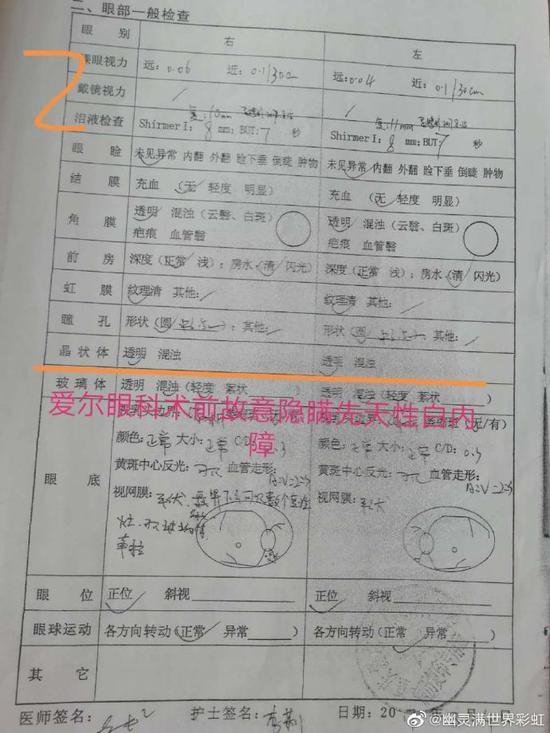 二、眼部一般检查
眼 别 右 左
裸眼视力 远:0.06 近:0.1/30cm 远:0.04 近:0.1/30cm
戴镜视力 / /
泪液检查 ShirmerⅠ:8mm;BUT:7秒 ShirmerⅠ:8mm;BUT:7秒
眼 睑 未见异常 内翻 外翻 睑下垂 倒睫 肿物 未见异常 内翻 外翻 睑下垂 倒睫 肿物
结 膜 充血 (无 轻度 明显) 充血 (无 轻度 明显)
角 膜 透明 混浊(云翳、白斑) 透明 混浊(云翳、白斑)
疤痕 血管翳 疤痕 血管翳
前 房 深度(正常 浅);房水(清 闪光) 深度(正常 浅);房水(清 闪光)
虹 膜 纹理清 其他:/ 纹理清 其他:/
瞳 孔 形状(圆 );其他:/ 形状(圆 );其他:/
晶状体 透明 混浊 透明 混浊
玻璃体 透明 混浊(轻度 絮状 透明 混浊(轻度 絮状 )
爱尔眼科术前故意隐瞒先天性白内
障
无/有)
眼 底 颜色:正常 大小:正常 C/D:0.3 颜色:正常 大小:正常 C/D:0.3
黄斑中心反光: 血管走形: 黄斑中心反光: 血管走形:
A:V=2:3 A:V=2:3
视网膜: 视网膜:
眼 位 正位 斜视 正位 斜视
眼球运动 各方向转动(正常 异常 ) 各方向转动(正常 异常 )
其 它
医师签名: 护士签名: 日期:20
@幽灵满世界彩虹